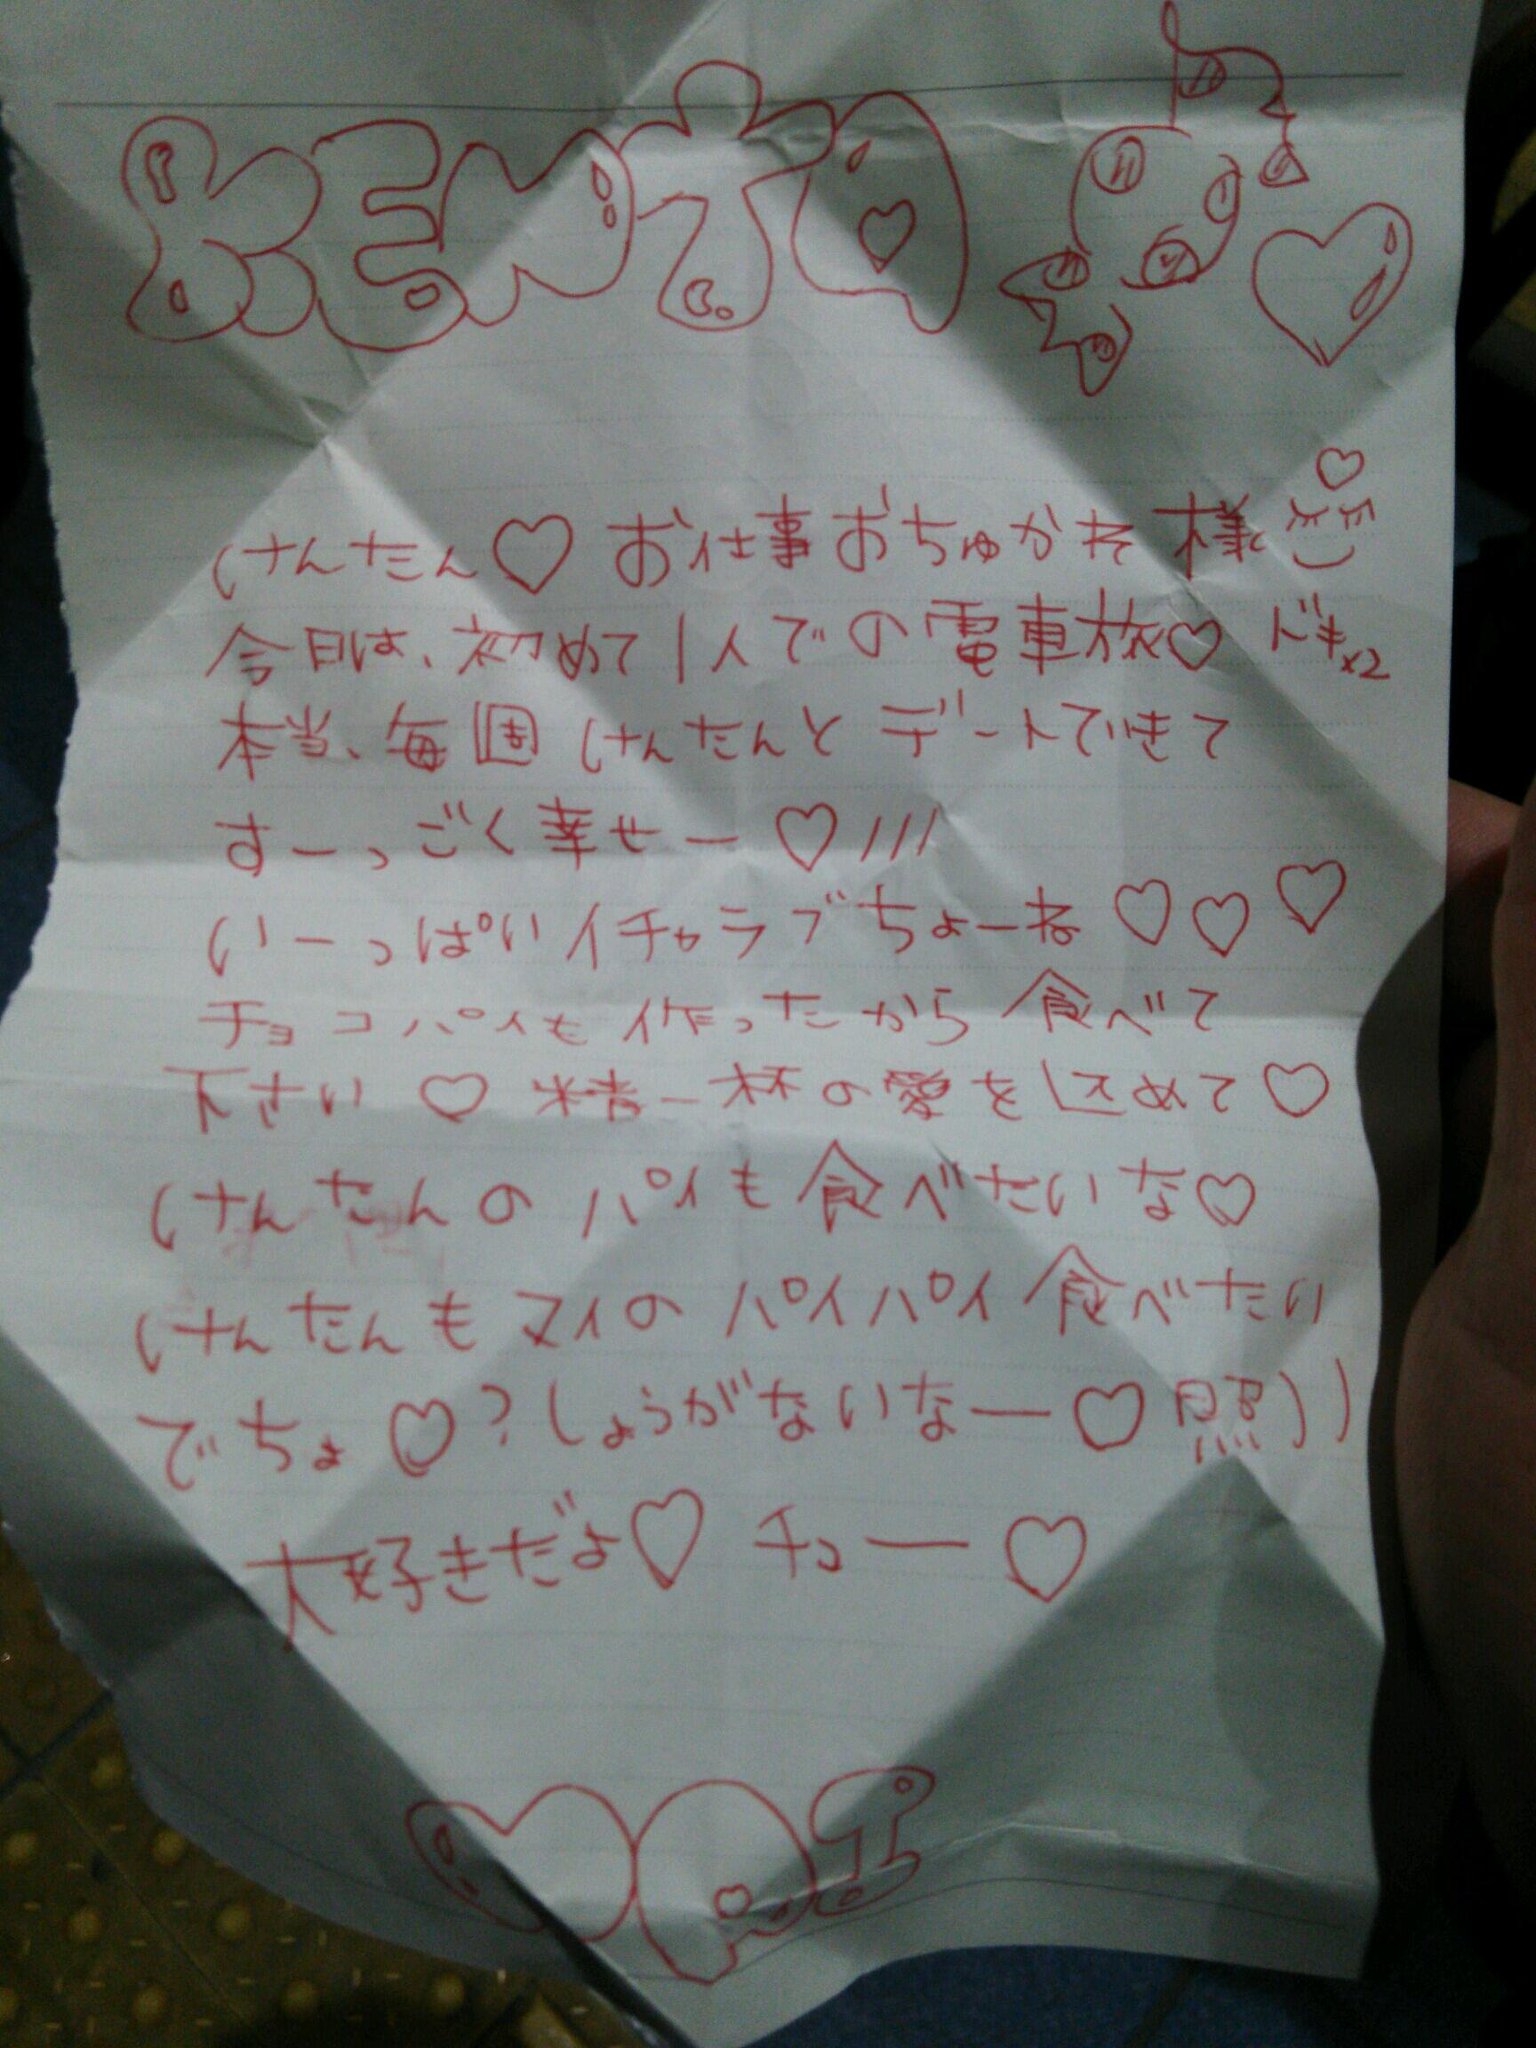 KENTA♡
けんたん♡ お仕事おちゅかれ様♡
今日は、初めて1人での電車旅♡ ドキ×2
本当、毎週けんたんとデートできて
すーっごく幸せー♡///
いーっぱいイチャラブちょーね♡♡♡
チョコパイも作ったから食べて
下さい♡ 精一杯の愛を込めて♡
けんたんのパイも食べたいな♡
けんたんもマイのパイパイ食べたい
でちょ♡?しょうがないなー♡照))
大好きだよ♡ チュー♡
MAI